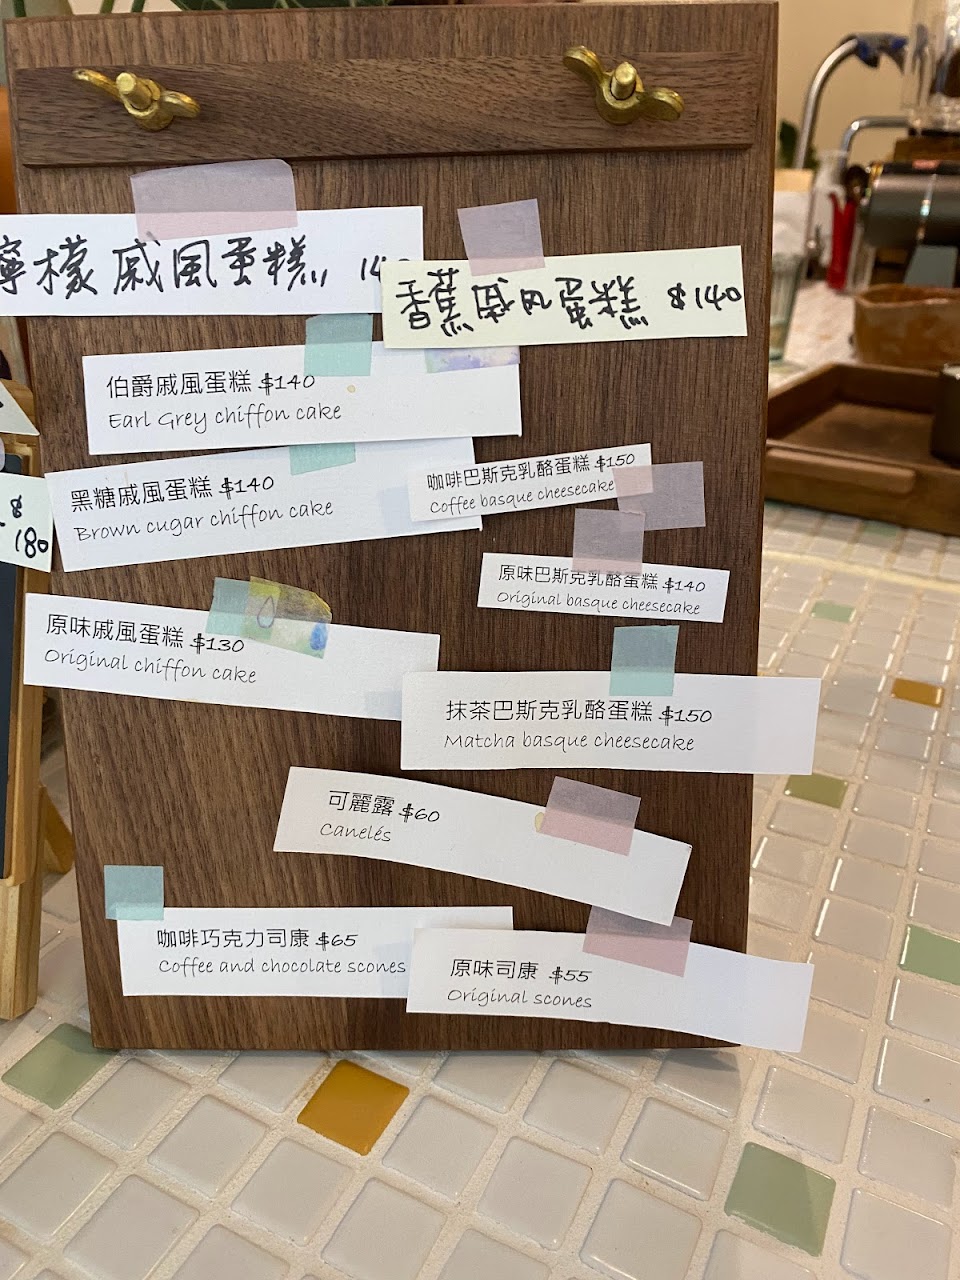 檸檬 戚風蛋糕 14
香蕉戚風蛋糕 $140
伯爵戚風蛋糕 $140
Earl Grey chiffon cake
黑糖戚風蛋糕 $140
Brown cugar chiffon cake
咖啡巴斯克乳酪蛋糕 $150
Coffee basque cheesecake
$
180
原味巴斯克乳酪蛋糕 $140
Original basque cheesecake
原味戚風蛋糕 $130
Original chiffon cake
抹茶巴斯克乳酪蛋糕 $150
Matcha basque cheesecake
可麗露 $60
Canelés
咖啡巧克力司康 $65
Coffee and chocolate scones
原味司康 $55
Original scones